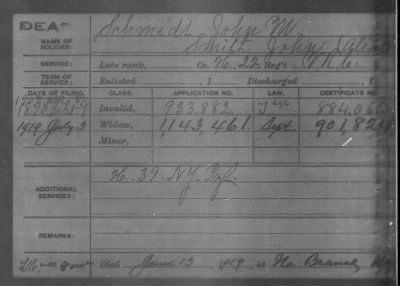 DEAD
NAME OF SOLDIER: Schmidt, John M.
Smith, John, alias
SERVICE: Late rank, Co. H, 22 Reg't V.R.C.
TERM OF SERVICE: Enlisted , 1 Discharged , 1
DATE OF FILING. CLASS. APPLICATION NO. LAW. CERTIFICATE NO.
Invalid, 933.882
1919 July 3 Widow, 1,143,461 Sept.
Minor,
ADDITIONAL SERVICES: H. 39. N.Y. Inf.
REMARKS:
Died June 13, 1919, at No. Branch